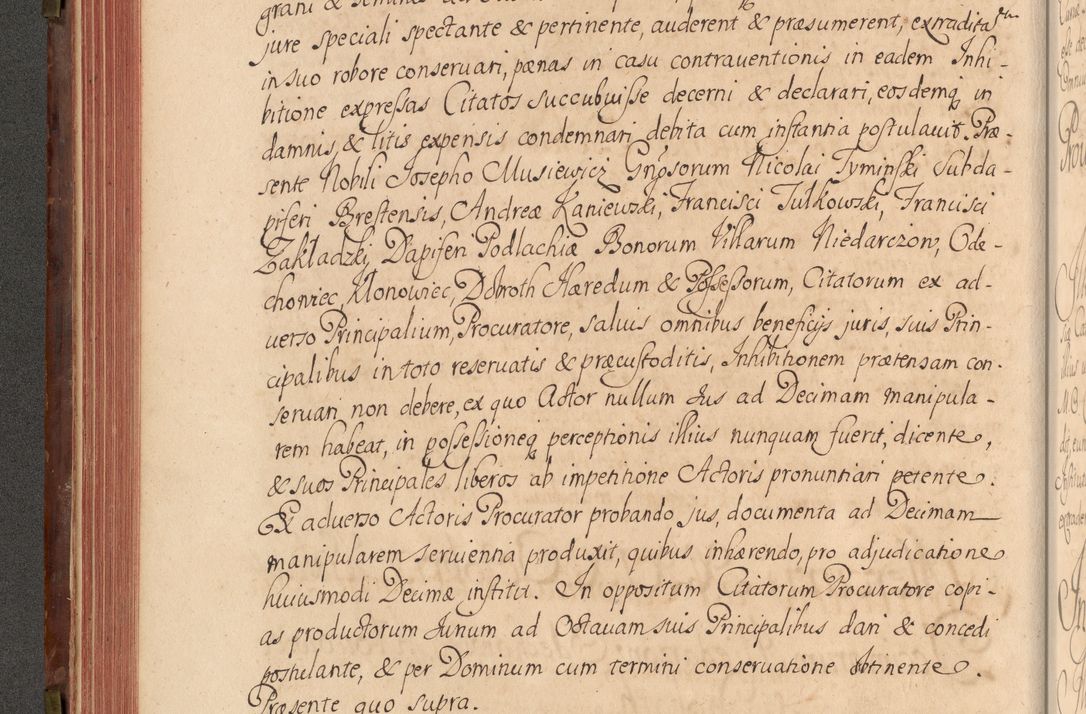 jure speciali spectante & pertinente, auderent & præsumerent, extradita
in suo robore conservari, pænas in casu contraventionis in eadem Inhi-
bitione expressas Citatos succubuisse decerni & declarari, eosdemq in
damnis, & litis expensis condemnari debita cum instantia postulavit. Præ-
sente Nobili Josepho Musiewicz Gnosorum Nicolai Tyminski Subda-
piferi Brestensis, Andreæ Kaniewski, Francisci Tulkowski, Francisci
Zakładzki Dapiferi Podlachiæ Bonorum Villarum Niedarczow, Ode-
chowiec, Klonowiec, Dobroth Hæredum & Possessorum, Citatorum ex ad-
uerso Principalium, Procuratore, salvis omnibus beneficijs juris, suis Prin-
cipalibus in toto reservatis & præcustoditis, Inhibitionem prætensam con-
servari non debere, ex quo Actor nullum Jus ad Decimam manipula-
rem habeat, in possessioneq perceptionis illius nunquam fuerit, dicente,
& suos Principales liberos ab impetitione Actoris pronuntiari petente.
Ex aduerso Actoris Procurator probando jus, documenta ad Decimam
manipularem servientia produxit, quibus inhærendo, pro adjudicatione
huiusmodi Decimæ institit. In oppositum Citatorum Procuratore copi-
as productorum Junum ad Octavam suis Principalibus dari & concedi
postulante, & per Dominum cum termini conservatione obtinente.
Præsente quo supra.